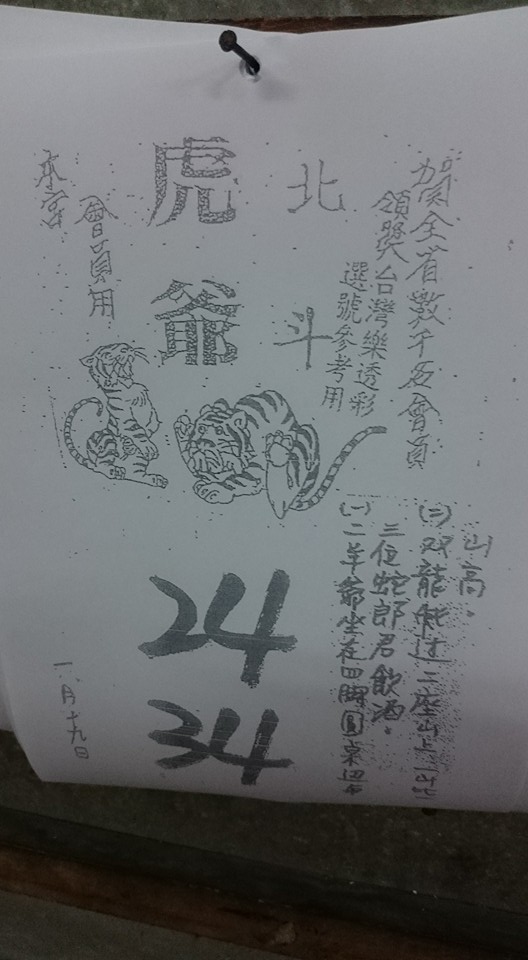 賀全省數千會員
領獎台灣樂透彩
選號參考用
北斗
虎爺
會員用
本宮
(一)二羊爺坐在四腳圓桌
三位蛇郎君飲酒。
(二)双龍飛过三座山
山高。
24
34
一月十九日